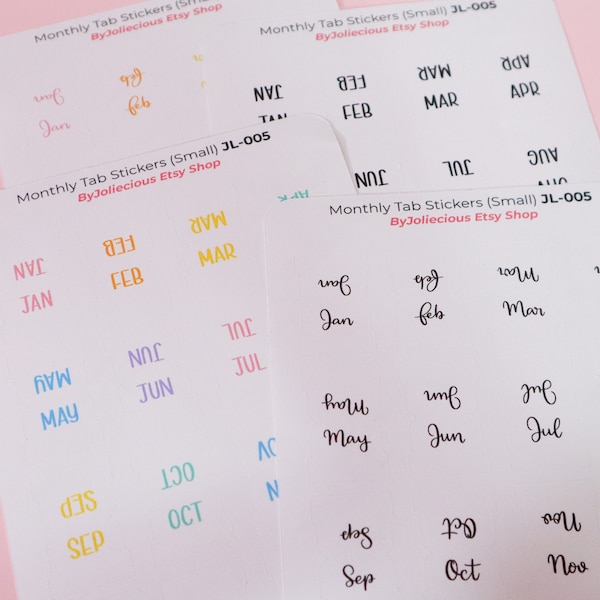 Monthly Tab Stickers (Sma
ByJoliecious Etsy Shop
Jan feb
Jan feb
Monthly Tab Stickers (Small) JL-005
ByJoliecious Etsy Shop
JAN FEB MAR APR
JAN FEB MAR APR
JUN JUL AUG
AUG
Monthly Tab Stickers (Small) JL-005
ByJoliecious Etsy Shop
JAN FEB MAR APR
JAN FEB MAR
MAY JUN JUL
MAY JUN JUL
SEP OCT NO
SEP OCT N
Monthly Tab Stickers (Small) JL-005
ByJoliecious Etsy Shop
Jan feb Mar
Jan feb Mar
May Jun Jul
May Jun Jul
Sep Oct Nov
Sep Oct Nov